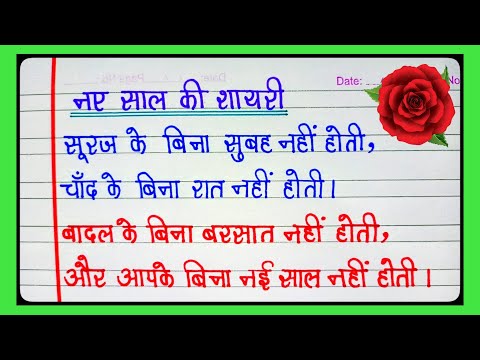 Date:
No
नए साल की शायरी
सूरज के बिना सुबह नहीं होती,
चाँद के बिना रात नहीं होती।
बादल के बिना बरसात नहीं होती,
और आपके बिना नई साल नहीं होती।